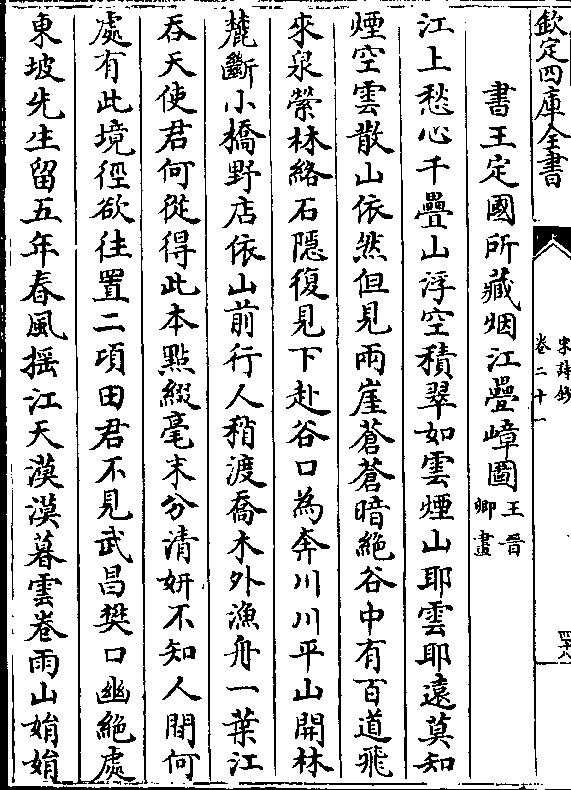 欽定四庫全書
宋詩鈔
卷二十一
四十八
書王定國所藏烟江疊嶂圖王晉
卿畫
江上愁心千疊山浮空積翠如雲煙山耶雲耶遠莫知
煙空雲散山依然但見兩崖蒼蒼暗絶谷中有百道飛
來泉縈林絡石隱復見下赴谷口為奔川川平山開林
麓斷小橋野店依山前行人稍渡喬木外漁舟一葉江
吞天使君何從得此本點綴毫末分清妍不知人閒何
處有此境徑欲往置二項田君不見武昌樊口幽絶處
東坡先生留五年春風揺江天漠漠暮雲卷雨山娟娟